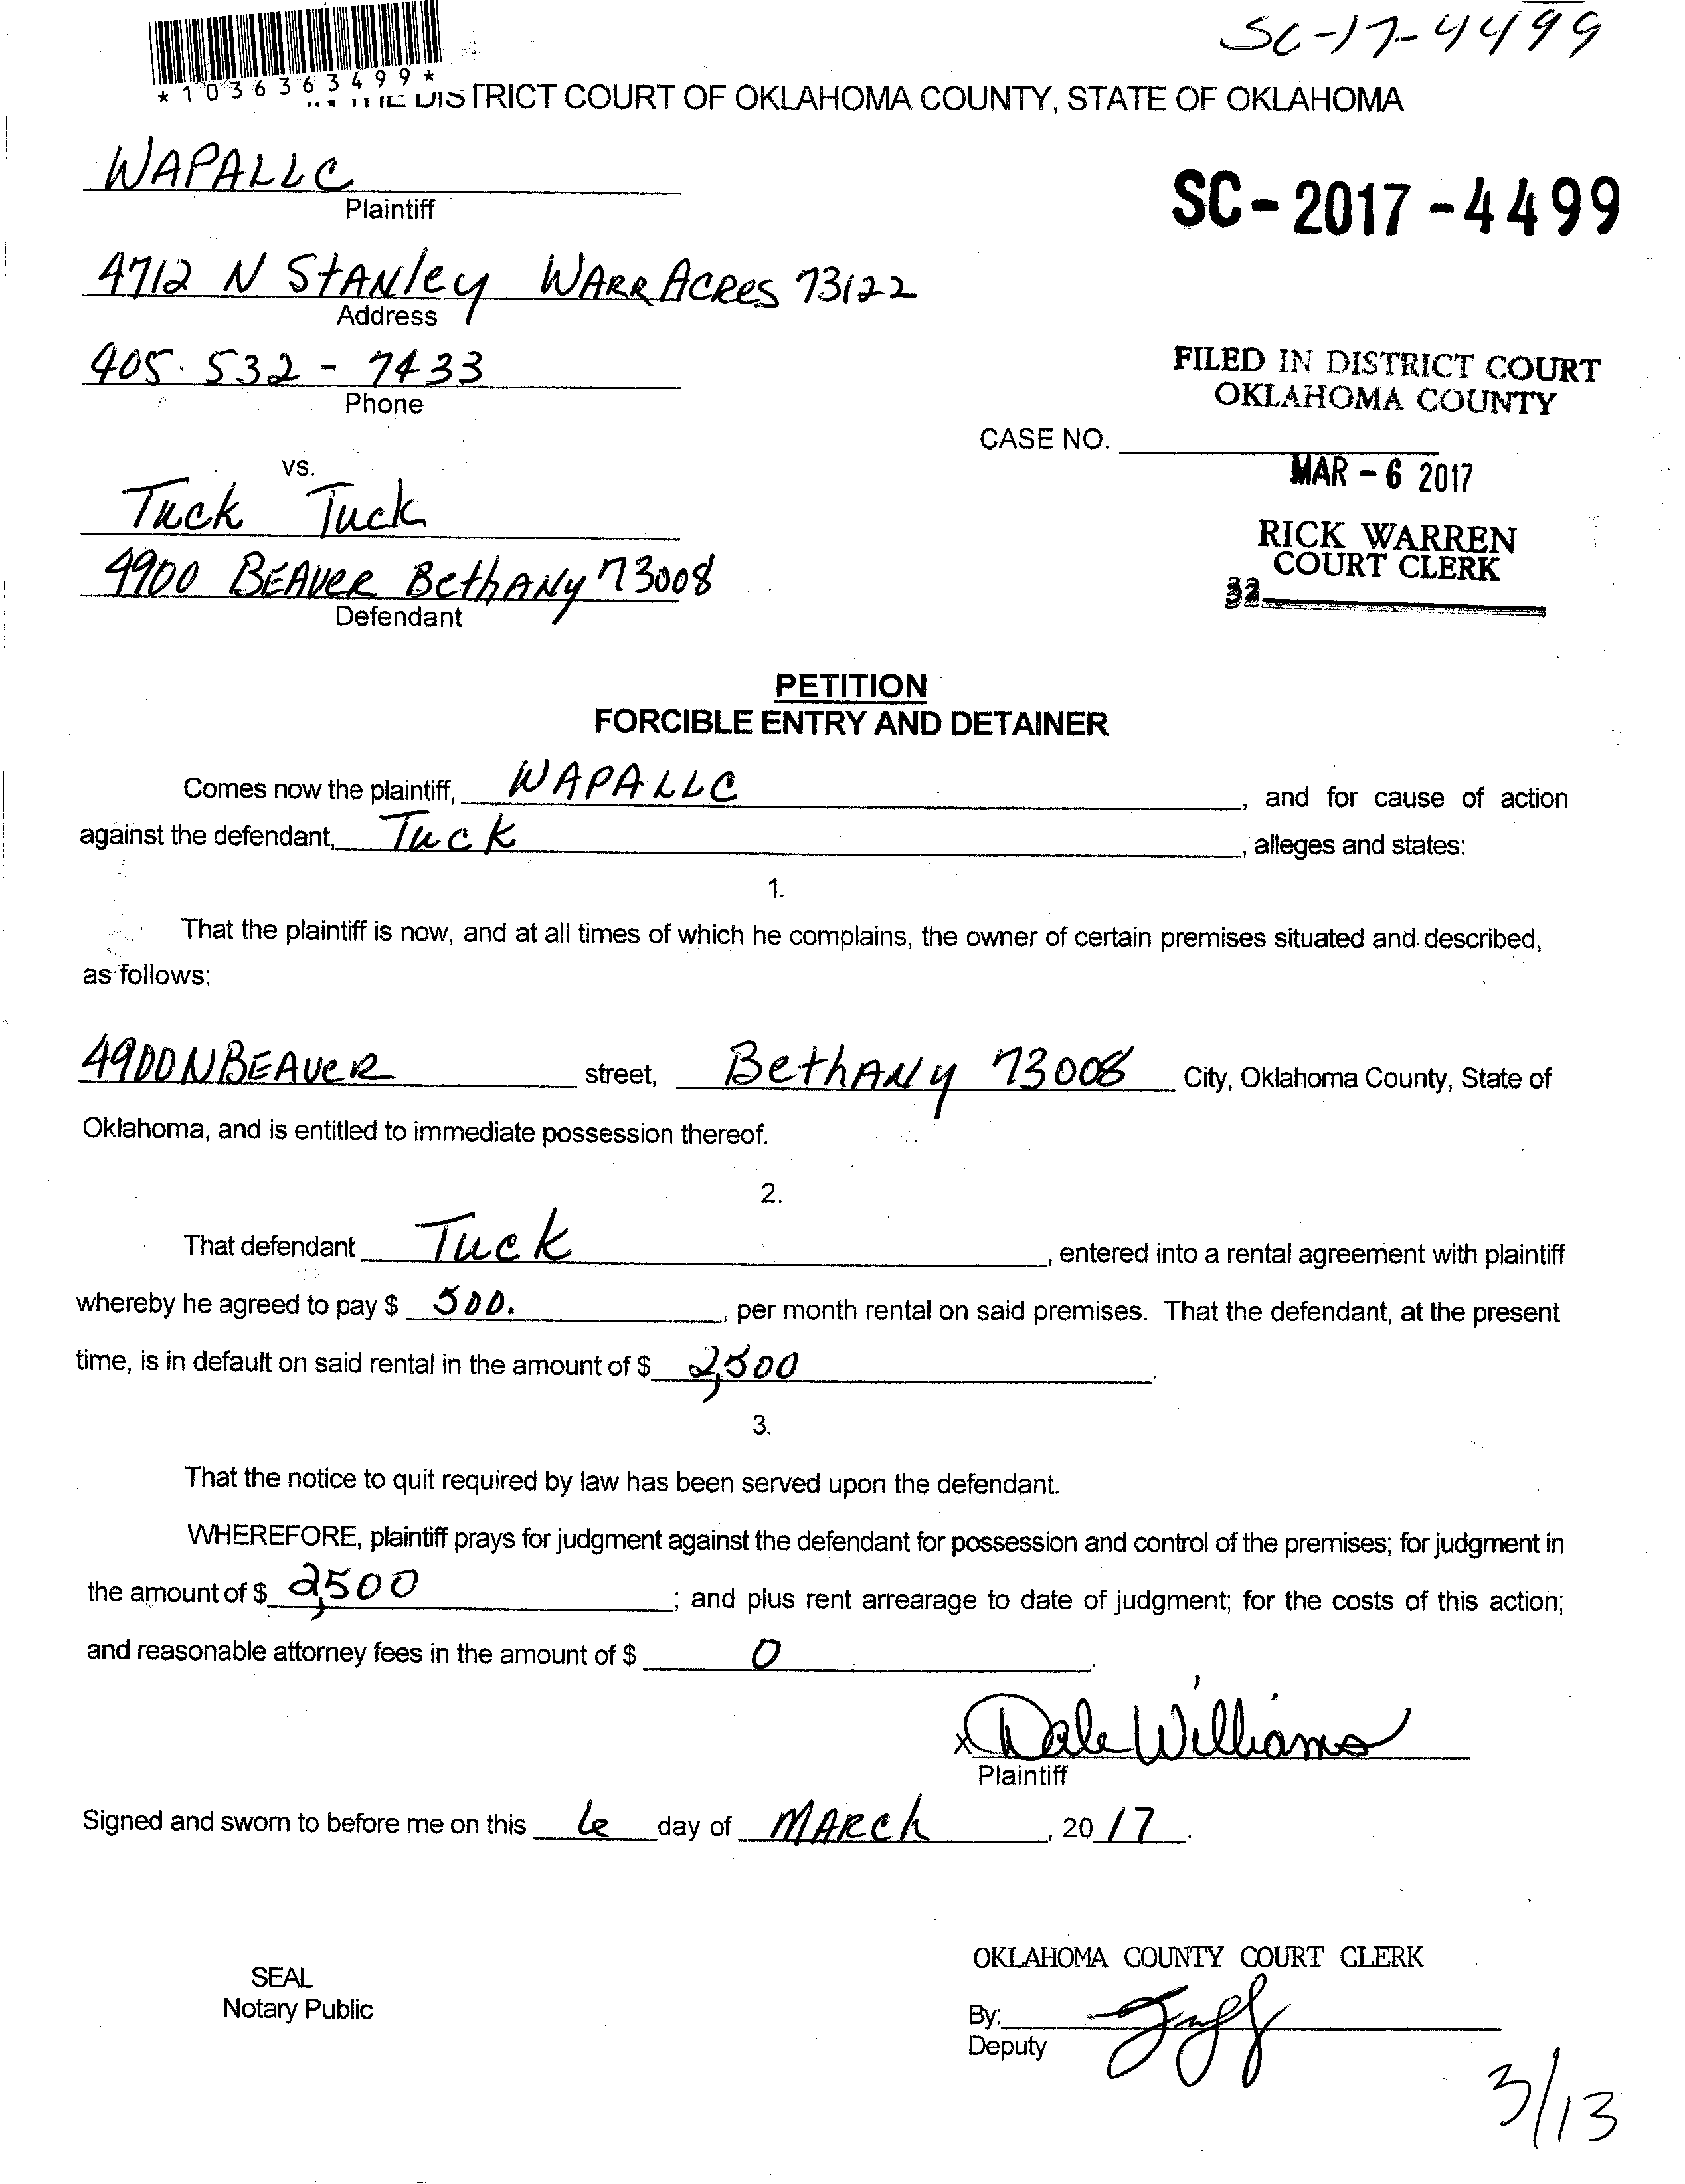 SC-17-4499
*1036363499*
DISTRICT COURT OF OKLAHOMA COUNTY, STATE OF OKLAHOMA
WAPALLC
Plaintiff
SC-2017-4499
4712 N Stanley Warr Acres 73122
Address
405. 532 - 7433
Phone
FILED IN DISTRICT COURT
OKLAHOMA COUNTY
CASE NO.
MAR - 6 2017
vs.
Tuck Tuck
RICK WARREN
COURT CLERK
32
4900 BEAVER BethANY 73008
Defendant
PETITION
FORCIBLE ENTRY AND DETAINER
Comes now the plaintiff, WAPALLC, and for cause of action
against the defendant, Tuck, alleges and states:
1.
That the plaintiff is now, and at all times of which he complains, the owner of certain premises situated and described,
as follows:
4900 N BEAVER street, BethANY 73008 City, Oklahoma County, State of
Oklahoma, and is entitled to immediate possession thereof.
2.
That defendant Tuck, entered into a rental agreement with plaintiff
whereby he agreed to pay $ 500., per month rental on said premises. That the defendant, at the present
time, is in default on said rental in the amount of $ 2,500.
3.
That the notice to quit required by law has been served upon the defendant.
WHEREFORE, plaintiff prays for judgment against the defendant for possession and control of the premises; for judgment in
the amount of $ 2,500; and plus rent arrearage to date of judgment; for the costs of this action;
and reasonable attorney fees in the amount of $ 0.
x Dale Williams
Plaintiff
Signed and sworn to before me on this 6 day of MARCh, 20 17.
OKLAHOMA COUNTY COURT CLERK
SEAL
Notary Public
By:
Deputy
3/13